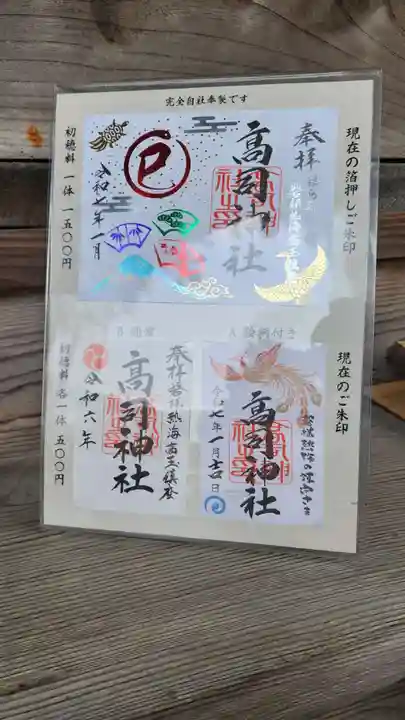 完全自社奉製です
現在の箔押しご朱印
奉拝
高司神社
巳
令和七年一月
初穂料 一体 一五〇〇円
現在のご朱印
A
高司神社
令和七年一月吉日
B 通常
奉拝
高司神社
令和六年
初穂料 各一体 五〇〇円